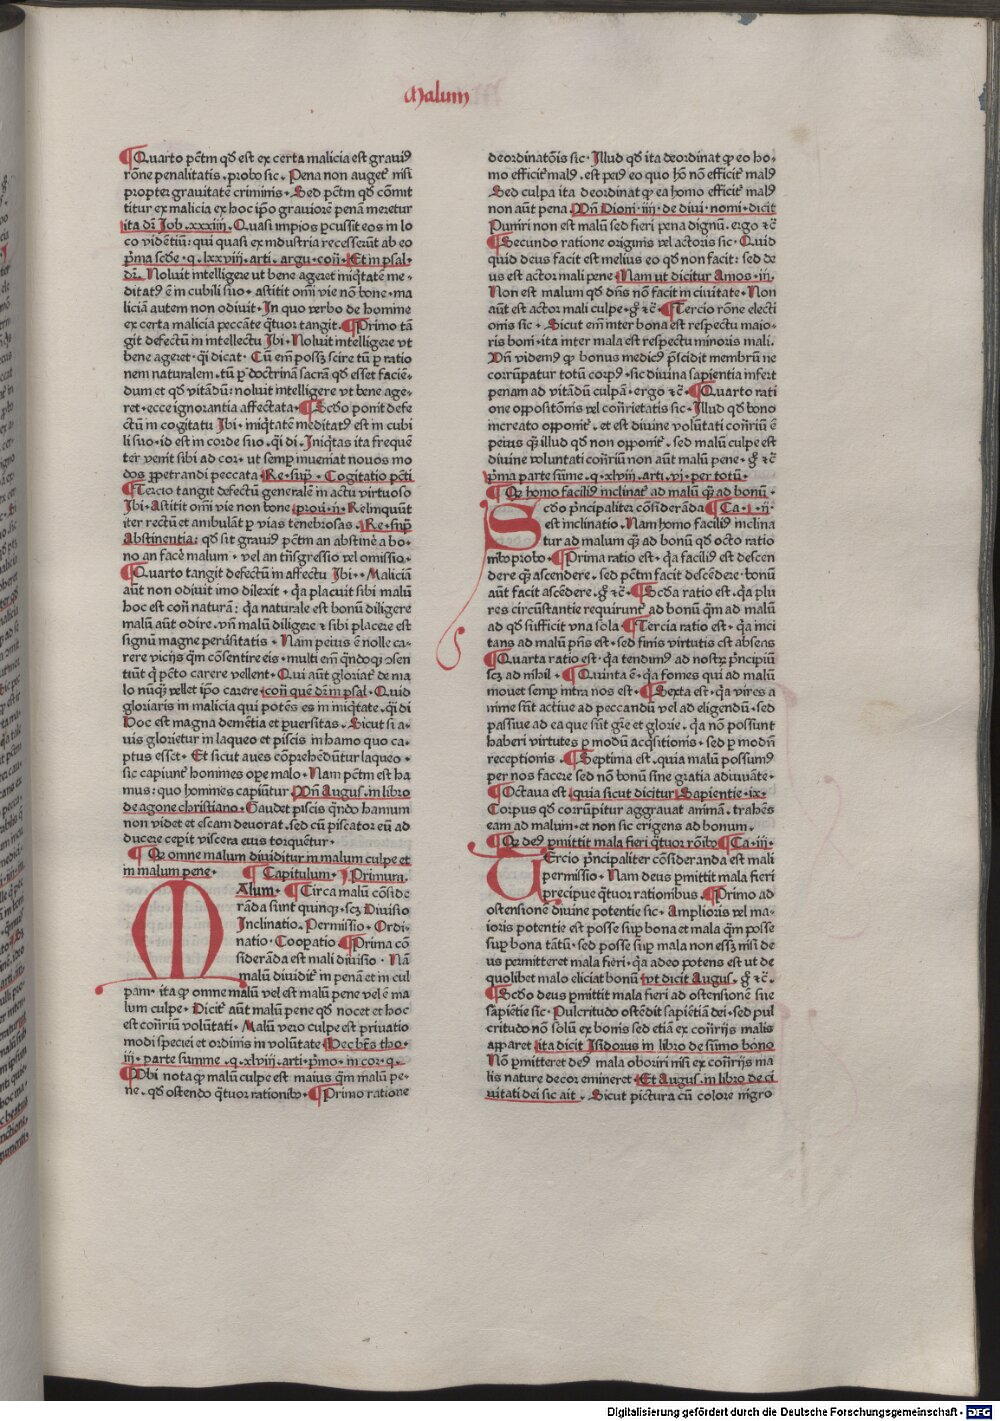 Malum
¶Quarto pctm̄ qđ est ex certa malicia est grauiꝰ
rōne penalitatis. probo sic. Pena non augeꝉ nisi
propter grauitatē criminis. Sed pctm̄ qđ cōmit
titur ex malicia ex hoc ip̄o grauiorē penā meretur
ita dr̄ Job .xxxiiij. Quasi impios ꝑcussit eos in lo
co vidētiū: qui quasi ex industria recesserūt ab eo
p̄ma scđe .q. lxxviij. arti. argu. con̄. Et in psal.
dr̄. Noluit intelligere ut bene ageret iniq̄tatē me-
ditatꝰ ē in cubili suo. astitit om̄i vie nō bone. ma
liciā autem non odiuit. In quo verbo de homine
ex certa malicia peccāte q̄tuor tangit. ¶Primo tā
git defectū in intellectu Ibi. Noluit intelligere vt
bene ageret. q̄i dicat. Cū em̄ possꝫ scire tū ꝑ ratio
nem naturalem. tū ꝑ doctrinā sacrā qđ esset faciē-
dum et qđ vitādū: noluit intelligere vt bene age-
ret. ecce ignorantia affectata. ¶Scđo ponit defe
ctū in cogitatu Ibi. iniq̄tatē meditatꝰ est in cubi
li suo. id est in corde suo. q̄i di. Iniq̄tas ita frequē
ter venit sibi ad cor. ut semꝑ inueniat nouos mo
dos ꝑpetrandi peccata. Re. sup̄. Cogitatio pcti
¶Tercio tangit defectū generalē in actu virtuoso
Ibi. Astitit om̄i vie non bone. proū. ij. Relinquūt
iter rectū et ambulāt ꝑ vias tenebrosas. Re. sup̄
Abstinentia: qđ sit grauiꝰ pctm̄ an abstinē a bo-
no an facē malum. vel an trn̄sgressio vel omissio.
¶Quarto tangit defectū in affectu Ibi. Maliciā
aūt non odiuit imo dilexit. q̄a placuit sibi malū
hoc est con̄ naturā: q̄a naturale est bonū diligere
malū aūt odire. vn̄ malū diligere ⁊ sibi placere est
signū magne ꝑuersitatis. Nam peius ē nolle ca-
rere vicijs q̄m cōsentire eis. multi em̄ qn̄doqꝫ ꝯsen
tiūt q̄ pc̄to carere vellent. Qui aūt gloriaꝉ de ma
lo nūq̄ꝫ vellet ip̄o carere. con̄ quē dr̄ in psal. Quid
gloriaris in malicia qui potēs es in iniq̄tate. q̄i di
Hoc est magna demētia et ꝑuersitas. Sicut si a-
uis glorietur in laqueo et piscis in hamo quo ca-
ptus essēt. Et sicut aues cōprehēdūtur laqueo.
sic capiunꝉ homines oꝑe malo. Nam pctm̄ est ha
mus: quo homines capiūtur. Vn̄ Augus. in libro
de agone christiano. Gaudet piscis qn̄do hamum
non videt et escam deuorat. sed cū piscator eū ad
ducere cepit viscera eius torquētur.
¶Qꝫ omne malum diuiditur in malum culpe et
in malum pene. ¶Capitulum. Primum.
MAlum. ¶Circa malū cōside
rāda sunt quinqꝫ. scꝫ Diuisio
Inclinatio. Permissio. Ordi-
natio. Cooꝑatio ¶Prima cō
siderāda est mali diuisio. Nā
malū diuidiꝉ in penā et in cul
pam. ita qꝫ omne malū vel est malū pene vel ē ma
lum culpe. Diciꝉ aūt malū pene qđ nocet et hoc
est con̄riū volūtati. Malū vero culpe est priuatio
modi speciei et ordinis in volūtate. Hec bt̄s tho.
iij. parte summe .q. xlviij. arti. p̄mo. in cor. q.
¶Ubi nota qꝫ malū culpe est maius q̄m malū pe-
ne. qđ ostendo q̄tuor rationibꝰ. ¶Primo ratione
deordinatōis sic. Illud qđ ita deordinat qꝫ eo ho-
mo efficiꝉ malꝰ. est peiꝰ eo quo hō nō efficiꝉ malꝰ
Sed culpa ita deordinat qꝫ ea homo efficiꝉ malꝰ
non aūt pena. Vn̄ Dioni. iiij. de diui. nomi. dicit
Puniri non est malū sed fieri pena dignū. ergo ⁊c̄
¶Secundo ratione originis vel actoris sic. Quid
quid deus facit est melius eo qđ non facit: sed de
us est actor mali pene. Nam ut dicitur Amos. iij.
Non est malum qđ dn̄s nō facit in ciuitate. Non
aūt est actor mali culpe. g̊ ⁊c̄. ¶Tercio rōne electi
onis sic. Sicut em̄ inter bona est respectu maio-
ris boni. ita inter mala est respectu minoris mali.
Vn̄ videmꝰ qꝫ bonus medicꝰ p̄scidit membrū ne
corrūpatur totū corpꝰ. sic diuina sapientia infert
penam ad vitādū culpā. ergo ⁊c̄. ¶Quarto rati
one oppositōnis vel con̄rietatis sic. Illud qđ bono
increato opponiꝉ. et est diuine volūtati con̄riū ē
peius q̄ꝫ illud qđ non opponiꝉ. sed malū culpe est
diuine voluntati con̄riū non aūt malū pene. g̊ ⁊c̄
p̄ma parte sūme .q. xlviij. arti. vi. per totū.
¶Qꝫ homo facilius inclinaꝉ ad malū q̄ꝫ ad bonū.
SEcđo p̄ncipaliter cōsiderāda ¶Ca. ij.
est inclinatio. Nam homo faciliꝰ inclina
tur ad malum q̄ꝫ ad bonū qđ octo ratio
nibꝰ probo. ¶Prima ratio est. q̄a faciliꝰ est descen
dere q̄ꝫ ascendere. sed pctm̄ facit descēdere. bonū
aūt facit ascēdere. g̊ ⁊c̄. ¶Scđa ratio est. q̄a plu
res circūstantie requirunꝉ ad bonū q̄m ad malū
ad qđ sufficit vna sola. ¶Tercia ratio est. q̄a inci
tans ad malū pn̄s est. sed finis virtutis est absens
¶Quarta ratio est. q̄a tendimꝰ ad nostrꝫ p̄ncipiū
scꝫ ad nihil. ¶Quinta ē. q̄a fomes qui ad malū
mouet semꝑ intra nos est. ¶Sexta est. q̄a vires a
nime sūt actiue ad peccandū vel ad eligendū. sed
passiue ad ea que sūt gr̄e et glorie. q̄a nō possunt
haberi virtutes ꝑ modū acq̄sitionis. sed ꝑ modū
receptionis. ¶Septima est. quia malū possumꝰ
per nos facere sed nō bonū sine gratia adiuuāte.
¶Octaua est. quia sicut dicitur Sapientie. ix.
Corpus qđ corrūpitur aggrauat animā. trahēs
eam ad malum. et non sic erigens ad bonum.
¶Qꝫ deꝰ ꝑmittit mala fieri q̄tuor rōibꝰ ¶Ca. iij.
TErcio p̄ncipaliter cōsideranda est mali
permissio. Nam deus ꝑmittit mala fieri
precipue q̄tuor rationibus. ¶Primo ad
ostensionē diuine potentie sic. Amplioris vel ma-
ioris potentie est posse suꝑ bona et mala q̄m posse
suꝑ bona tātū. sed posse suꝑ mala non essꝫ nisi de
us permitteret mala fieri. q̄a adeo potens est ut de
quolibet malo eliciat bonū. vt dicit Augus. g̊ ⁊c̄.
¶Scđo deus ꝑmittit mala fieri ad ostensionē sue
sapiētie sic. Pulcritudo ostēdit sapiētiā dei. sed pul
critudo nō solū ex bonis sed etiā ex con̄rijs malis
apparet. ita dicit Isidorus in libro de sūmo bono
Nō ꝑmitteret deꝰ mala oboriri nisi ex con̄rijs ma
lis nature decor emineret. Et Augus. in libro de ci
uitati dei sic ait. Sicut pictura cū colore nigro
Digitalisierung gefördert durch die Deutsche Forschungsgemeinschaft - DFG